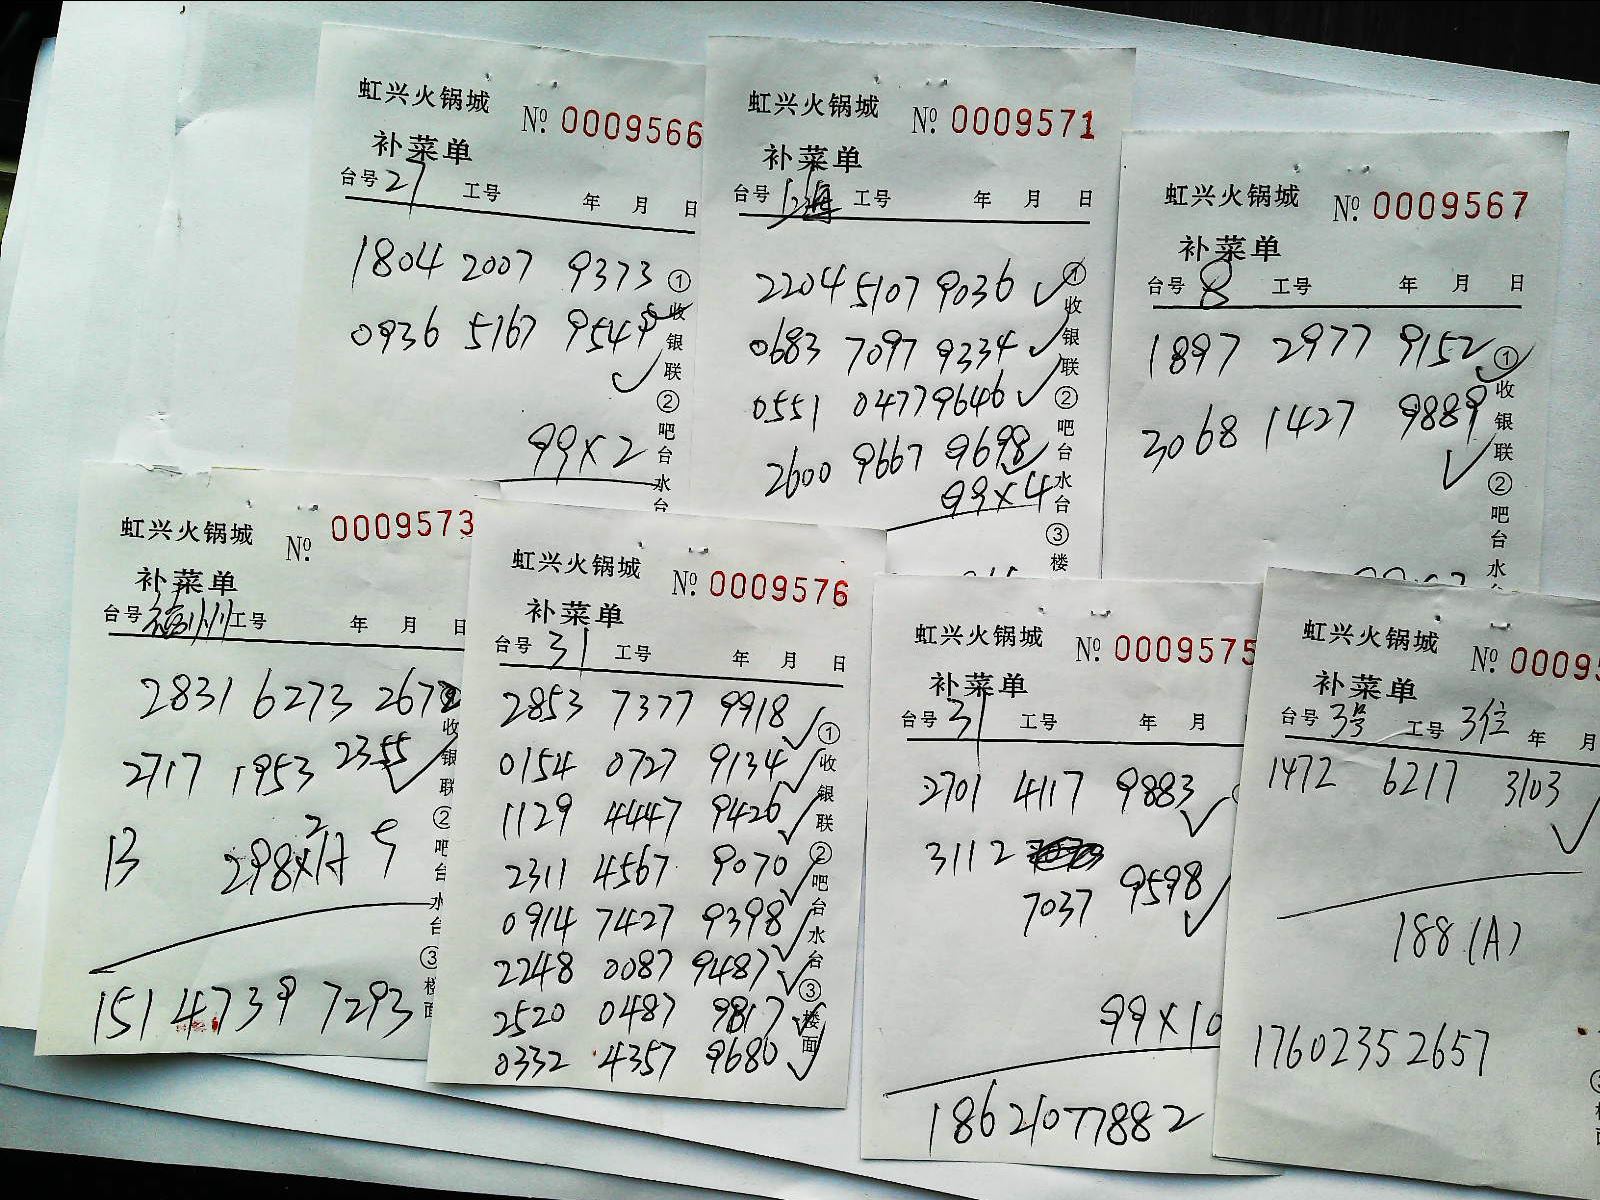 虹兴火锅城
No. 0009566
补菜单
台号 27 工号 年 月 日
1804 2007 9373
0936 5167
99×2
①收银联②吧台水台
虹兴火锅城
No. 0009571
补菜单
台号 上海 工号 年 月 日
2204 5107 9036
0683 7097 9334
0551 0477 9646
2600 9667 9698
99×4
①收银联②吧台水台③楼
虹兴火锅城
No. 0009567
补菜单
台号 8 工号 年 月 日
1897 2977 9152
3068 1427 9889
①收银联②吧台水
虹兴火锅城
No. 0009573
补菜单
台号 福州 工号 年 月 日
2831 6273
2717 1953 2355
13
1514739 7293
收银联②吧台水台③楼面
虹兴火锅城
No. 0009576
补菜单
台号 31 工号 年 月 日
2853 7377 9918
0154 0727 9134
1129 4447 9426
2311 4567 9070
0914 7427 9398
2248 0087 9487
2520 0487 9817
0332 4357 9680
①收银联②吧台水台③楼面
虹兴火锅城
No. 0009575
补菜单
台号 31 工号 年 月
2701 4117 9883
3112
7037 9598
99×10
18621077882
虹兴火锅城
No. 0009
补菜单
台号 3号 工号 3位 年 月
1472 6217 3103
188(A)
17602352657